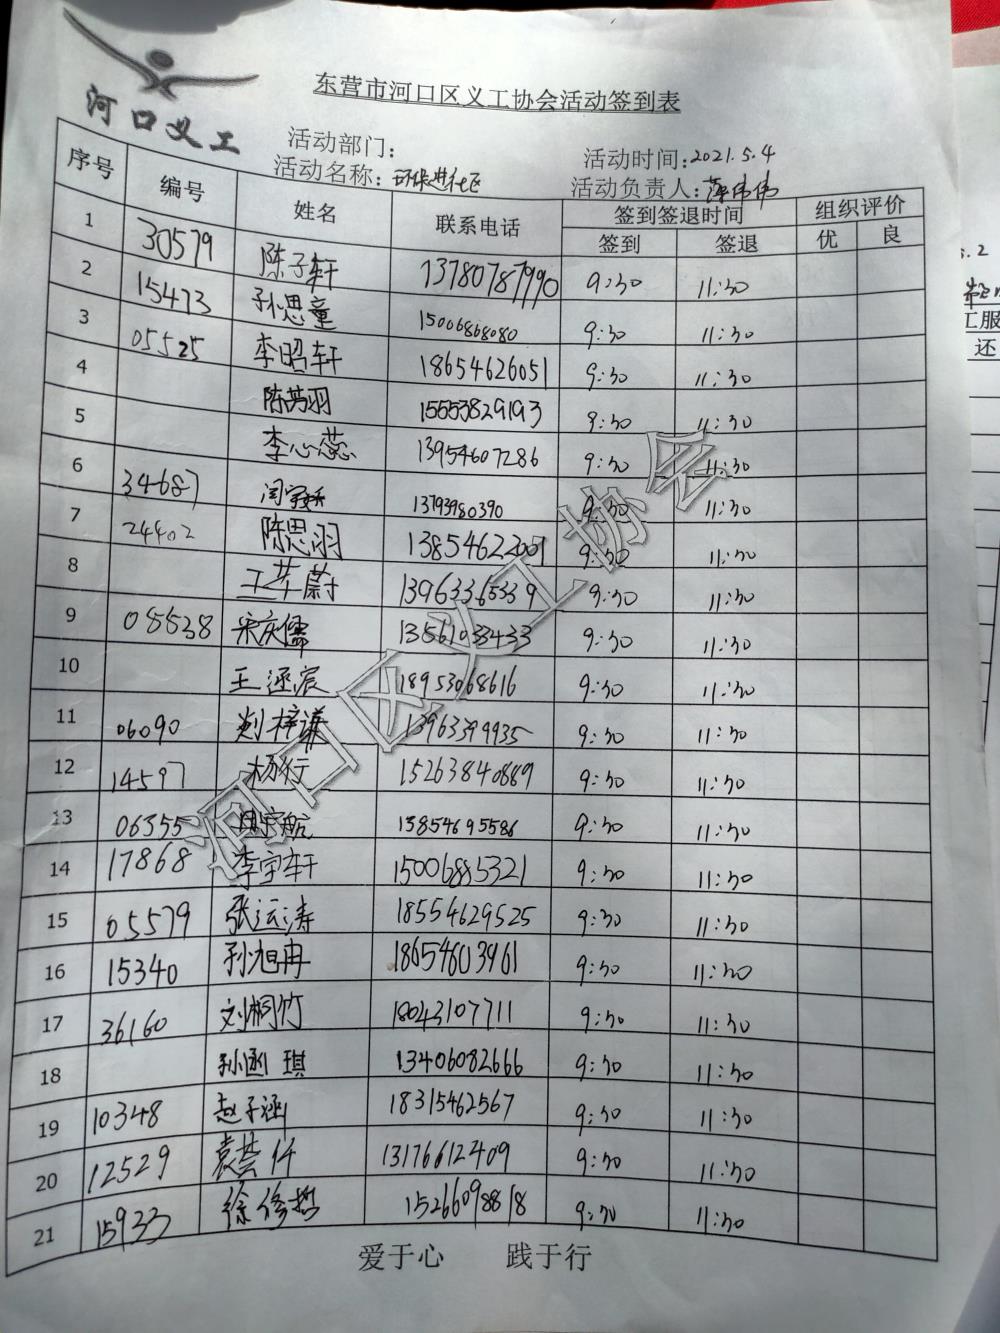 河口义工
东营市河口区义工协会活动签到表
活动部门：
活动时间：2021.5.4
活动名称：环保进社区
活动负责人：薄伟伟
序号 编号 姓名 联系电话 签到签退时间 组织评价
签到 签退 优 良
1 30579 陈子轩 13780787990 9:30 11:30
2 15473 孙思童 15006868080 9:30 11:30
3 05525 李昭轩 18654626051 9:30 11:30
4 陈芮羽 15553829193 9:30 11:30
5 李心蕊 13954607286 9:30 11:30
6 34687 13793980390 9:30 11:30
7 24402 陈思羽 13854622001 9:30 11:30
8 王芊蔚 13963365339 9:30 11:30
9 08538 宋庆儒 13561033433 9:30 11:30
10 王逐宸 18953068616 9:30 11:30
11 06090 刘梓谦 13963399935 9:30 11:30
12 14597 杨行 15263840889 9:30 11:30
13 06355 宇航 13854695586 9:30 11:30
14 17868 李宇轩 15006885321 9:30 11:30
15 05579 张运涛 18554629525 9:30 11:30
16 15340 孙旭冉 18654603961 9:30 11:30
17 36160 刘桐竹 18043107711 9:30 11:30
18 孙函琪 13406082666 9:30 11:30
19 10348 赵子涵 18315462567 9:30 11:30
20 12529 袁艺仟 13176612409 9:30 11:30
21 15933 徐修哲 15266098818 9:30 11:30
爱于心 践于行
河口区义工协会
5.2
工服
还